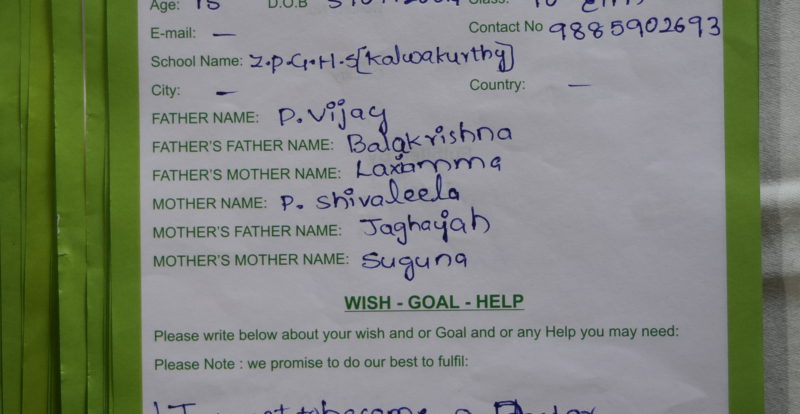 Age: 15 D.O.B Class: 10
E-mail: — Contact No 9885902693
School Name: Z.P.G.H.S[Kalwakurthy]
City: — Country: —
FATHER NAME: P. Vijay
FATHER'S FATHER NAME: Balakrishna
FATHER'S MOTHER NAME: Laxamma
MOTHER NAME: P. Shivaleela
MOTHER'S FATHER NAME: Jaghayah
MOTHER'S MOTHER NAME: Suguna
WISH - GOAL - HELP
Please write below about your wish and or Goal and or any Help you may need:
Please Note : we promise to do our best to fulfil:
become a